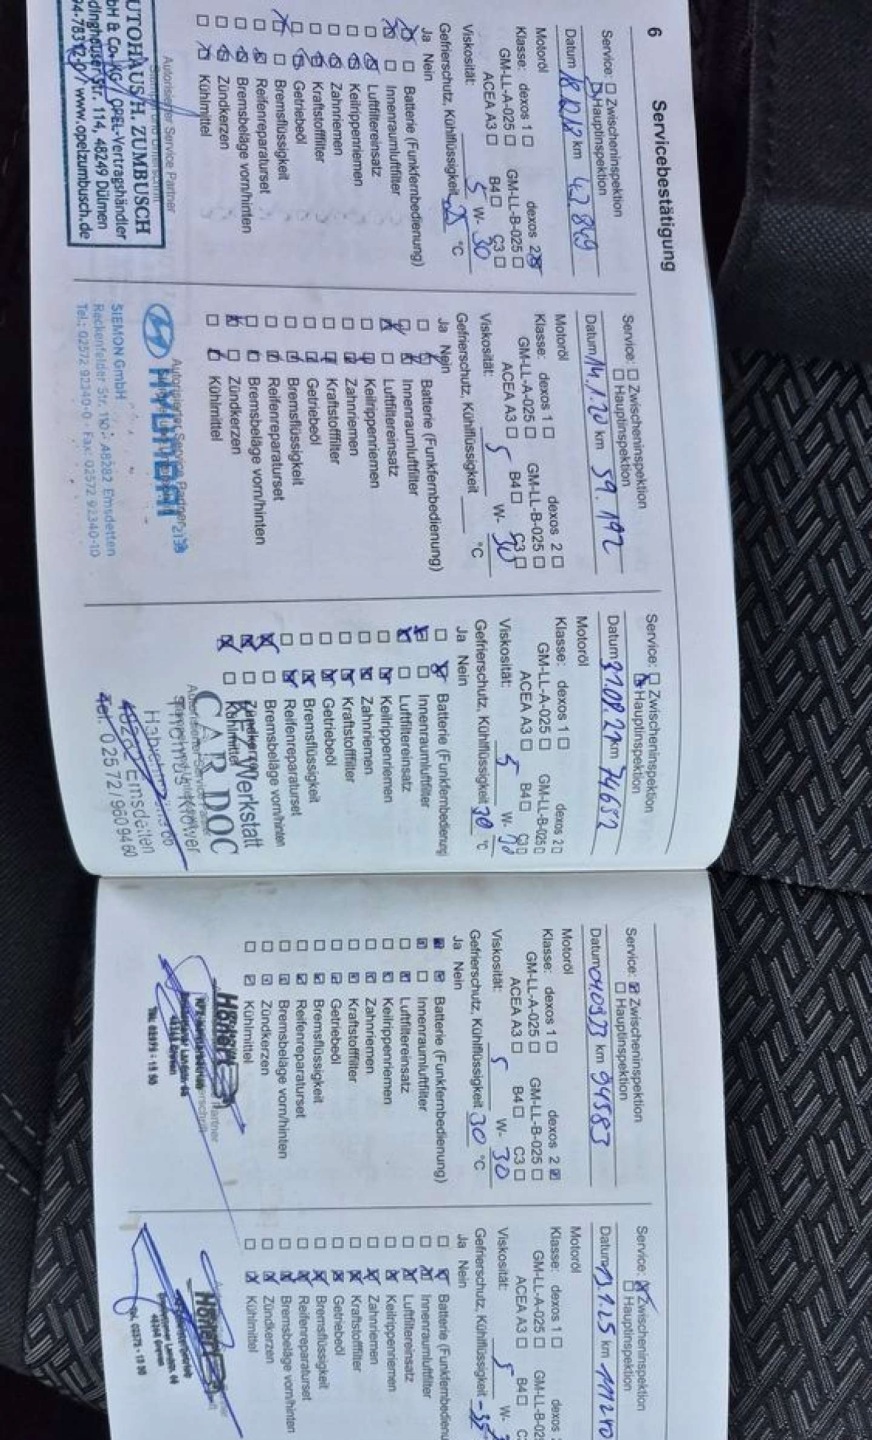 6 Servicebestätigung
Service: ☐ Zwischeninspektion
☒ Hauptinspektion
Datum 18.12.18 km 43 849
Motoröl
Klasse: dexos 1 ☐ dexos 2 ☒
GM-LL-A-025 ☐ GM-LL-B-025 ☐
ACEA A3 ☐ B4 ☐ C3 ☐
Viskosität: 5 W- 30
Gefrierschutz, Kühlflüssigkeit °C
Ja Nein
☒ ☐ Batterie (Funkfernbedienung)
☒ ☐ Innenraumluftfilter
☐ ☒ Luftfiltereinsatz
☐ ☒ Keilrippenriemen
☐ ☒ Zahnriemen
☐ ☒ Kraftstofffilter
☐ ☒ Getriebeöl
☒ ☐ Bremsflüssigkeit
☐ ☒ Reifenreparaturset
☐ ☒ Bremsbeläge vorn/hinten
☐ ☒ Zündkerzen
☐ ☒ Kühlmittel
Autorisierter Service Partner
AUTOHAUS H. ZUMBUSCH
GmbH & Co. KG / OPEL-Vertragshändler
Str. 114, 48249 Dülmen
www.opelzumbusch.de
Service: ☐ Zwischeninspektion
☐ Hauptinspektion
Datum 14.1.20 km 59.192
Motoröl
Klasse: dexos 1 ☐ dexos 2 ☐
GM-LL-A-025 ☐ GM-LL-B-025 ☐
ACEA A3 ☐ B4 ☐ C3 ☐
Viskosität: 5 W- 30
Gefrierschutz, Kühlflüssigkeit °C
Ja Nein
☐ ☒ Batterie (Funkfernbedienung)
☐ ☒ Innenraumluftfilter
☒ ☐ Luftfiltereinsatz
☐ ☒ Keilrippenriemen
☐ ☒ Zahnriemen
☐ ☒ Kraftstofffilter
☐ ☒ Getriebeöl
☐ ☒ Bremsflüssigkeit
☐ ☒ Reifenreparaturset
☐ ☒ Bremsbeläge vorn/hinten
☒ ☐ Zündkerzen
☐ ☒ Kühlmittel
Autorisierter Service Partner
HYUNDAI
SIEMON GmbH
Reckenfelder Str. 110 · 48282 Emsdetten
Tel.: 02572 92340-0 · Fax: 02572 92340-10
Service: ☐ Zwischeninspektion
☒ Hauptinspektion
Datum 31.08.21 km 74652
Motoröl
Klasse: dexos 1 ☐ dexos 2 ☐
GM-LL-A-025 ☐ GM-LL-B-025 ☐
ACEA A3 ☐ B4 ☐ C3 ☐
Viskosität: 5 W-
Gefrierschutz, Kühlflüssigkeit 30 °C
Ja Nein
☐ ☒ Batterie (Funkfernbedienung)
☒ ☐ Innenraumluftfilter
☒ ☐ Luftfiltereinsatz
☐ ☒ Keilrippenriemen
☐ ☒ Zahnriemen
☐ ☒ Kraftstofffilter
☐ ☒ Getriebeöl
☐ ☒ Bremsflüssigkeit
☐ ☒ Reifenreparaturset
☒ ☐ Bremsbeläge vorn/hinten
☒ ☐ Zündkerzen
☒ ☐ Kühlmittel
Kfz Werkstatt
CAR DOC
Emsdetten
Tel. 02572/9609460
Service: ☒ Zwischeninspektion
☐ Hauptinspektion
Datum 04.09.23 km 94583
Motoröl
Klasse: dexos 1 ☐ dexos 2 ☒
GM-LL-A-025 ☐ GM-LL-B-025 ☐
ACEA A3 ☐ B4 ☐ C3 ☐
Viskosität: 5 W- 30
Gefrierschutz, Kühlflüssigkeit 30 °C
Ja Nein
☒ ☒ Batterie (Funkfernbedienung)
☒ ☐ Innenraumluftfilter
☐ ☒ Luftfiltereinsatz
☐ ☒ Keilrippenriemen
☐ ☒ Zahnriemen
☐ ☒ Kraftstofffilter
☐ ☒ Getriebeöl
☐ ☒ Bremsflüssigkeit
☐ ☒ Reifenreparaturset
☐ ☒ Bremsbeläge vorn/hinten
☐ ☒ Zündkerzen
☐ ☒ Kühlmittel
Service: ☒ Zwischeninspektion
☐ Hauptinspektion
Datum 13.1.25 km 111240
Motoröl
Klasse: dexos 1 ☐ dexos
GM-LL-A-025 ☐ GM-LL-B-02
ACEA A3 ☐ B4 ☐ C
Viskosität: 5 W-
Gefrierschutz, Kühlflüssigkeit -35
Ja Nein
☐ ☒ Batterie (Funkfernbedienu
☐ ☒ Innenraumluftfilter
☐ ☒ Luftfiltereinsatz
☐ ☒ Keilrippenriemen
☐ ☒ Zahnriemen
☐ ☒ Kraftstofffilter
☐ ☒ Getriebeöl
☐ ☒ Bremsflüssigkeit
☐ ☒ Reifenreparaturset
☐ ☒ Bremsbeläge vorn/hinten
☐ ☒ Zündkerzen
☐ ☒ Kühlmittel